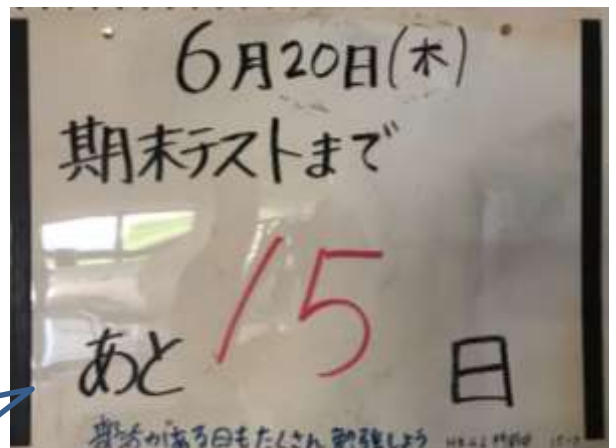 6月20日(木)
期末テストまで
あと 15 日
部活がある日もたくさん勉強しよう